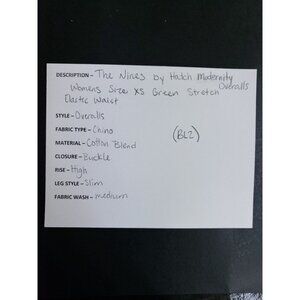 DESCRIPTION – The Nines by Hatch Maternity Overalls
Womens Size XS Green Stretch
Elastic Waist
STYLE – Overalls
FABRIC TYPE – Chino
MATERIAL – Cotton Blend
(BL2)
CLOSURE – Buckle
RISE – High
LEG STYLE – Slim
FABRIC WASH – medium